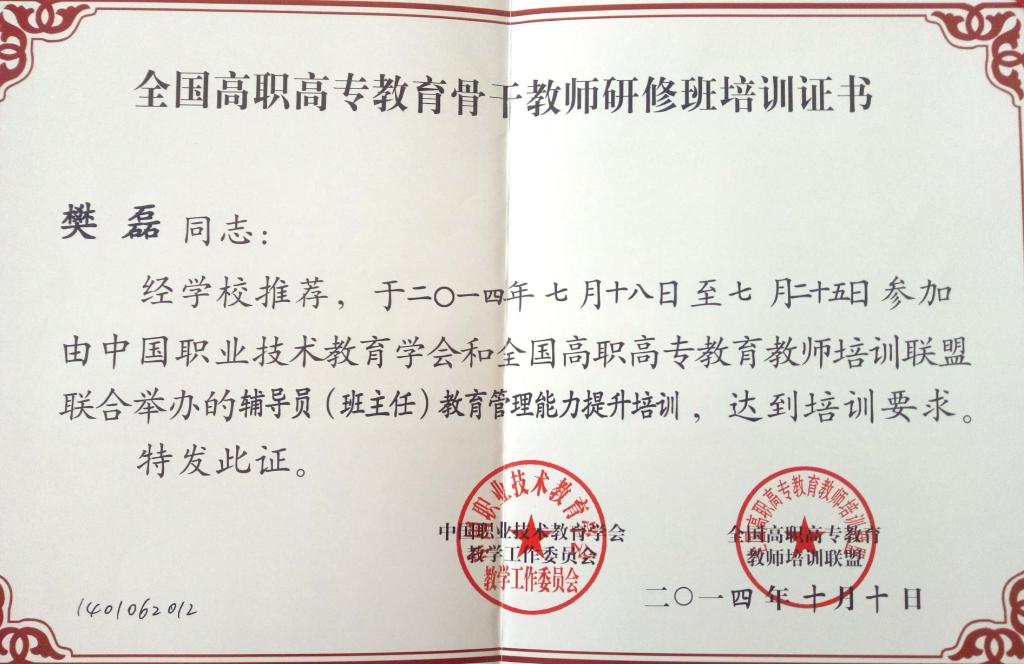 全国高职高专教育骨干教师研修班培训证书
樊磊 同志：
经学校推荐，于二〇一四年七月十八日至七月二十五日参加
由中国职业技术教育学会和全国高职高专教育教师培训联盟
联合举办的辅导员（班主任）教育管理能力提升培训，达到培训要求。
特发此证。
中国职业技术教育学会
教学工作委员会
全国高职高专教育
教师培训联盟
中国职业技术教育学会
教学工作委员会
全国高职高专教育教师培训联盟
二〇一四年十月十日
1401062012